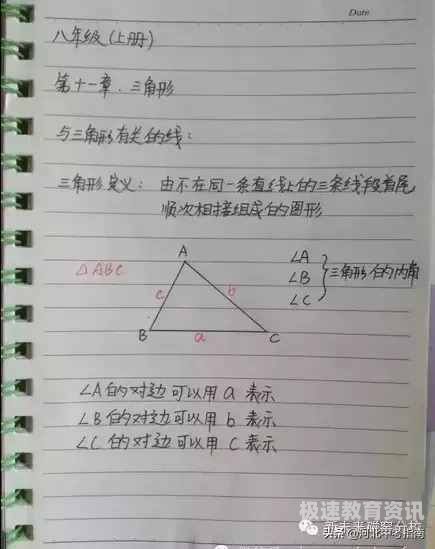 Date
八年级(上册)
第十一章. 三角形
与三角形有关的线:
三角形定义: 由不在同一条直线上的三条线段首尾
顺次相接组成的图形
△ABC
A
c
b
B
a
C
∠A
∠B
∠C
三角形的内角
∠A的对边可以用a表示
∠B的对边可以用b表示
∠C的对边可以用c表示
极速教育资讯
头条@河北中考指南